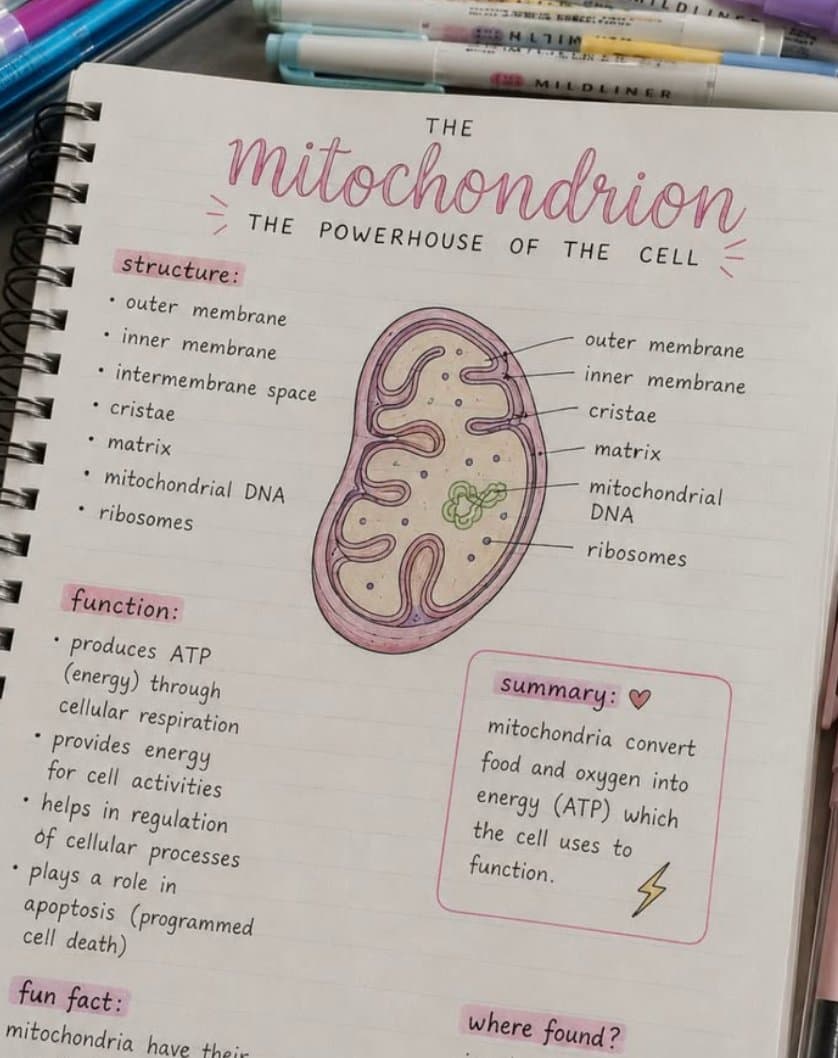 MILDLINER
MILDLINER
THE
mitochondrion
THE POWERHOUSE OF THE CELL
structure:
• outer membrane
• inner membrane
• intermembrane space
• cristae
• matrix
• mitochondrial DNA
• ribosomes
outer membrane
inner membrane
cristae
matrix
mitochondrial
DNA
ribosomes
function:
• produces ATP
(energy) through
cellular respiration
• provides energy
for cell activities
• helps in regulation
of cellular processes
• plays a role in
apoptosis (programmed
cell death)
summary:
mitochondria convert
food and oxygen into
energy (ATP) which
the cell uses to
function.
fun fact:
mitochondria have their
where found?